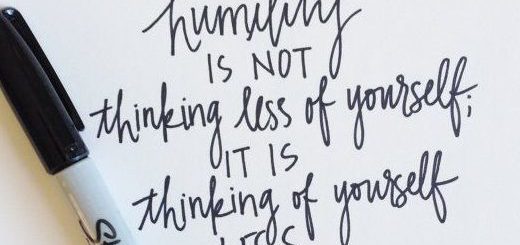 humility
IS NOT
thinking less of yourself;
IT IS
thinking of yourself
LESS